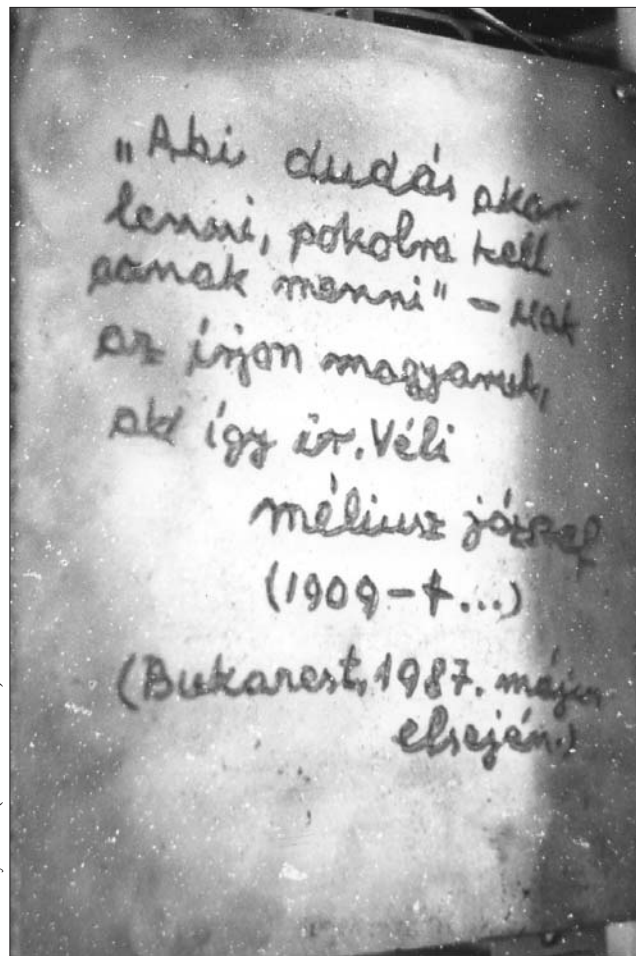 „Aki dudás akar
lenni, pokolra kell
annak menni" – csak
az írjon magyarul,
aki így ír. Véli
méliusz józsef
(1909 – † ...)
(Bukarest, 1987. május
elsején.)